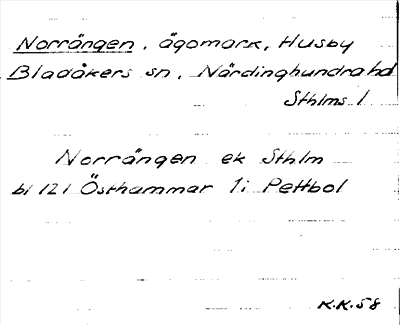 Norrängen, ägomark, Husby
Bladåkers sn, Närdinghundra hd
Sthlms l
Norrängen ek Sthlm
bl 121 Östhammar 1i Pettbol
K.K.58